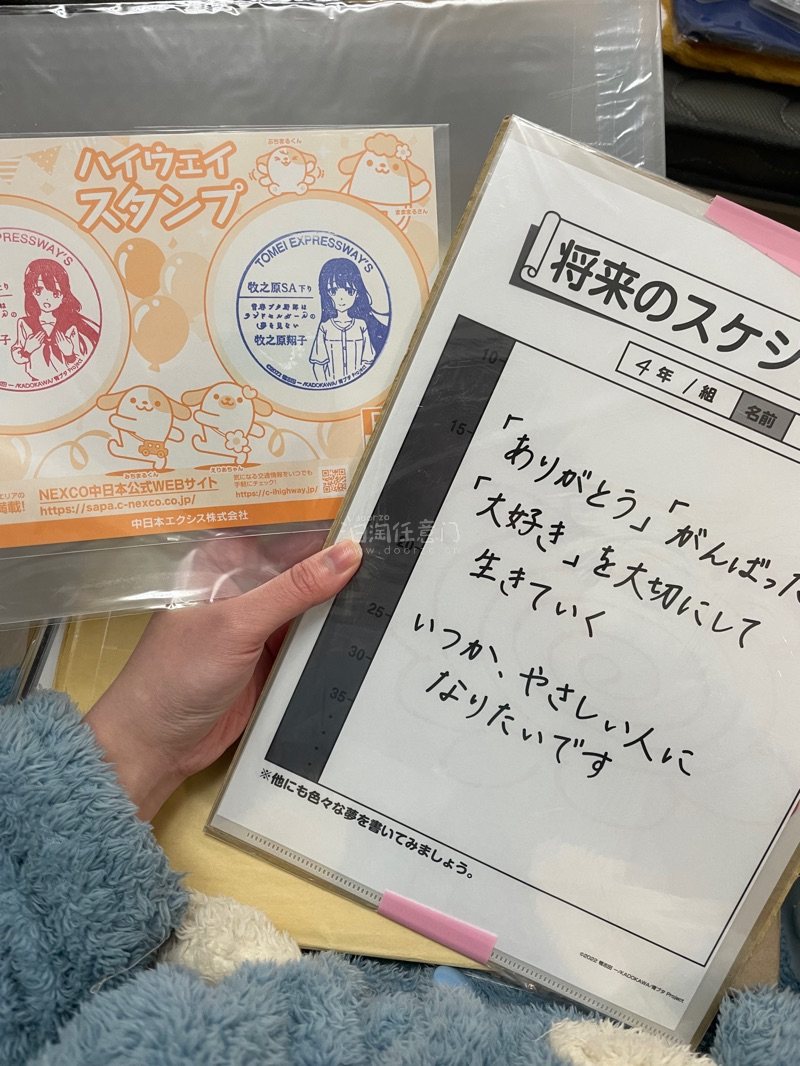 ハイウェイ
スタンプ
ぷちまるくん
まままるさん
PRESSWAY'S
り
の
子
一/KADOKAWA/青ブタ Project
TOMEI EXPRESSWAY'S
牧之原SA下り
青春ブタ野郎は
ランドセルガールの
夢を見ない
牧之原翔子
©2022 鴨志田 一/KADOKAWA/青ブタ Project
みちまるくん
えりあちゃん
エリアの
満載!
NEXCO中日本公式WEBサイト
https://sapa.c-nexco.co.jp/
気になる交通情報をいつでも
手軽にチェック!
https://c-ihighway.jp/
中日本エクシス株式会社
淘任意门
www.doorzo.cn
将来のスケジ
4年1組 名前
10
15
25
30
35
「ありがとう」「がんばった
「大好き」を大切にして
生きていく
いつか、やさしい人に
なりたいです
※他にも色々な夢を書いてみましょう。
©2022 鴨志田 一/KADOKAWA/青ブタ Project